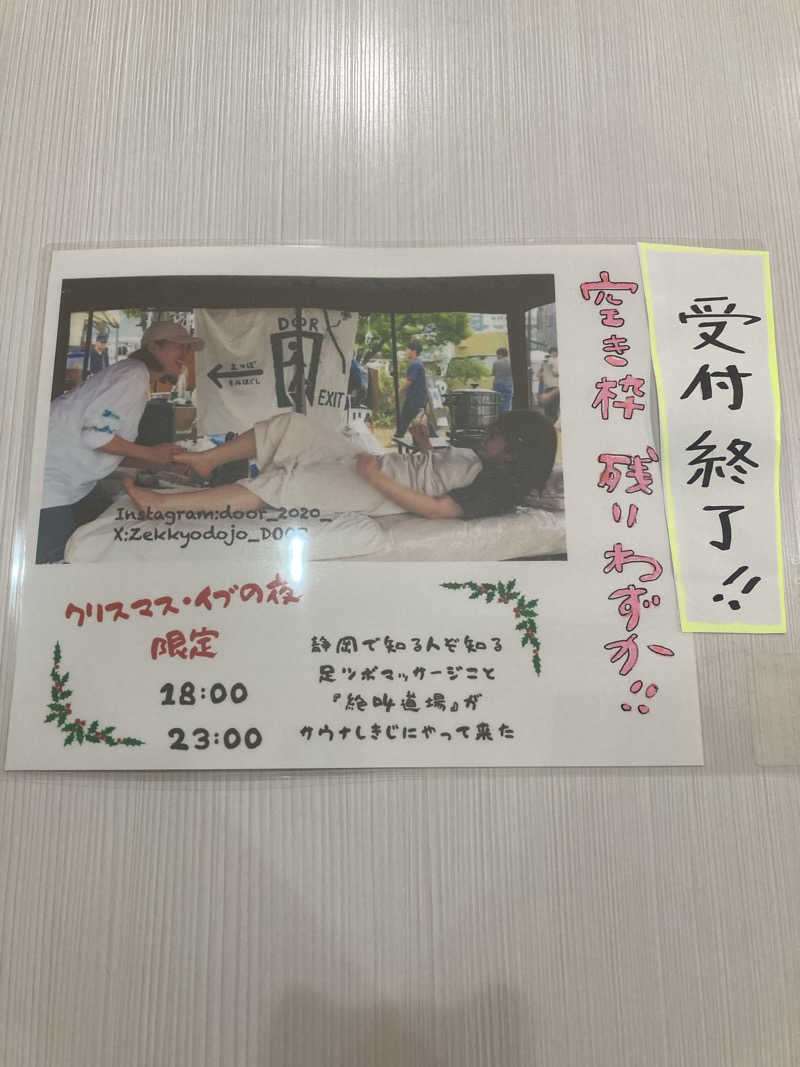 DOOR
足つぼ
もみほぐし
EXIT
Instagram:door_2020_
X:Zekkyodojo_DOOR
クリスマス・イブの夜
限定
18:00
23:00
静岡で知る人ぞ知る
足ツボマッサージこと
『絶叫道場』が
サウナしきじにやって来た
空き枠 残りわずか!!
受付終了!!